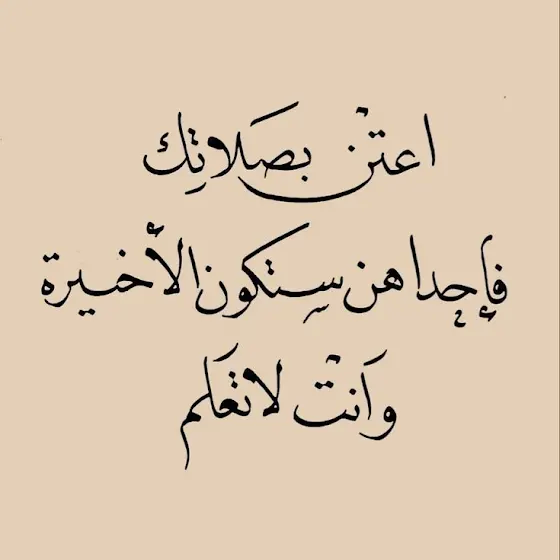 اعتن بصلاتك
فإحداهن ستكون الأخيرة
وَانتْ لا تعَلم